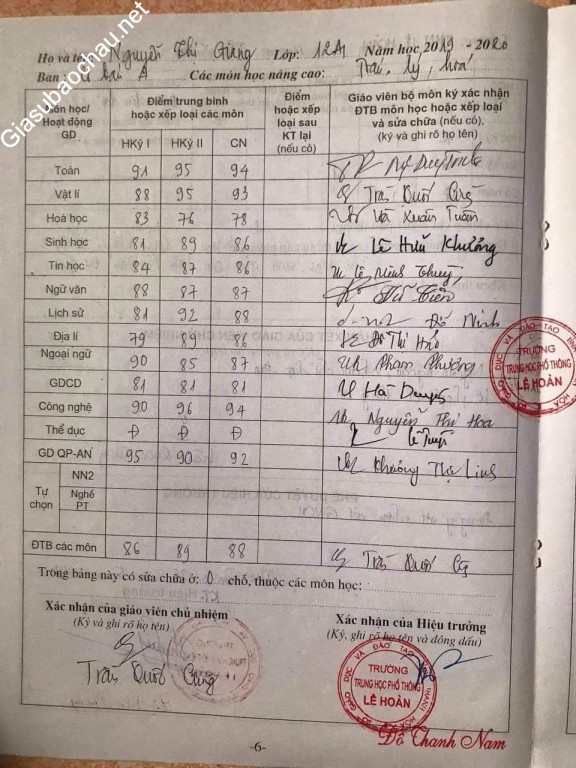 Giasubaochau.net
Họ và tên Nguyễn Thị Giang Lớp: 12A1 Năm học 2019 - 2020
Ban: A Các môn học nâng cao: Toán, lý, hoá
Môn học/ Hoạt động GD Điểm trung bình hoặc xếp loại các môn Điểm hoặc xếp loại sau KT lại (nếu có) Giáo viên bộ môn ký xác nhận ĐTB môn học hoặc xếp loại và sửa chữa (nếu có), (ký và ghi rõ họ tên)
HKỳ I HKỳ II CN
Toán 91 95 94
Vật lí 88 95 93 Trần Cường
Hoá học 83 76 78 Xuân Tuấn
Sinh học 81 89 86 Lê Hữu Khưởng
Tin học 84 87 86 Lê Minh Thuý
Ngữ văn 88 87 87
Lịch sử 81 92 88 Đỗ Ninh
Địa lí 79 89 86 Thị
Ngoại ngữ 90 85 87 Phạm Phương
GDCD 81 81 81 Hà Dung
Công nghệ 90 96 94 Nguyễn Thị Hoa
Thể dục Đ Đ Đ Lê
GD QP-AN 95 90 92 Khương Thị Linh
Tự chọn NN2
Nghề PT
ĐTB các môn 86 89 88 Trần
Trong bảng này có sửa chữa ở: 0 chỗ, thuộc các môn học:
Xác nhận của giáo viên chủ nhiệm Xác nhận của Hiệu trưởng
(Ký và ghi rõ họ tên) (Ký, ghi rõ họ tên và đóng dấu)
TRƯỜNG
TRUNG HỌC PHỔ THÔNG
LÊ HOÀN
TRƯỜNG
TRUNG HỌC PHỔ THÔNG
LÊ HOÀN
Trần
Đỗ Thanh Nam
-6-